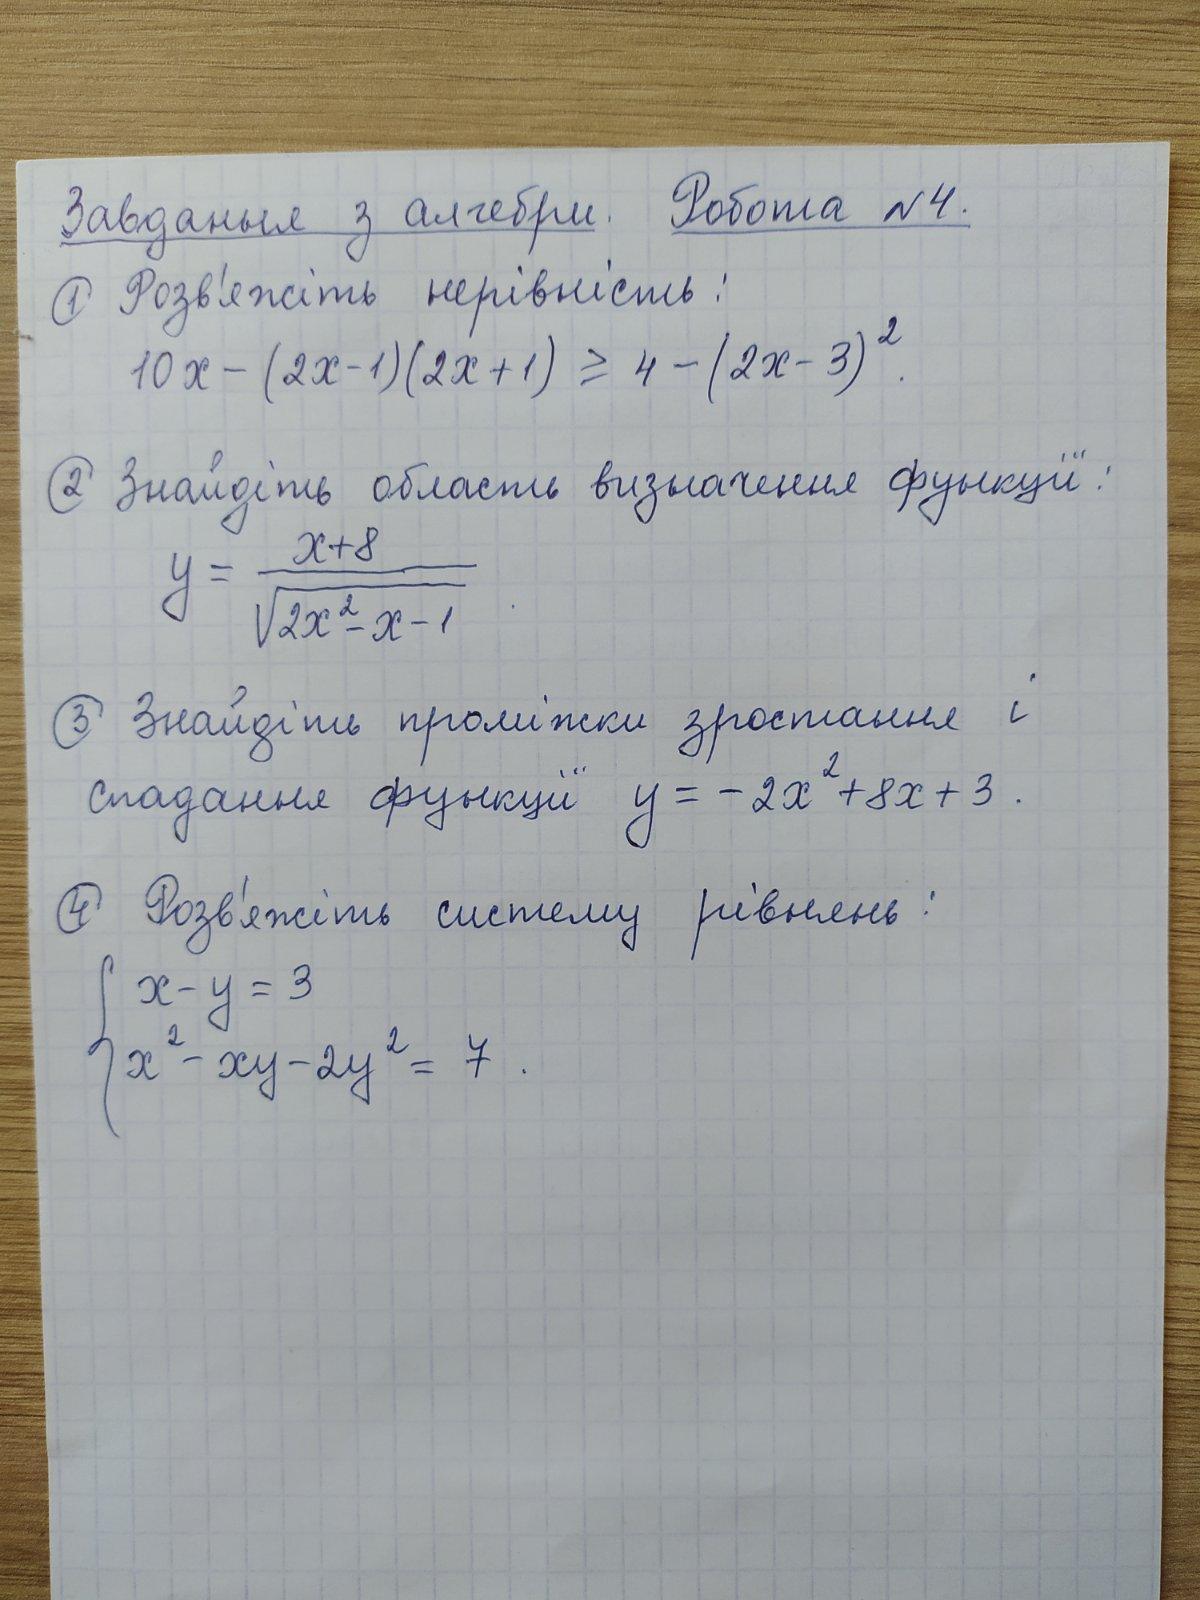 Завдання з алгебри. Робота №4.
① Розв'яжіть нерівність:
10x - (2x-1)(2x+1) ≥ 4 - (2x-3)².
② Знайдіть область визначення функції:
y = (x+8)/√(2x²-x-1).
③ Знайдіть проміжки зростання і
спадання функції y = -2x²+8x+3.
④ Розв'яжіть систему рівнянь:
{ x-y = 3
x²-xy-2y² = 7.